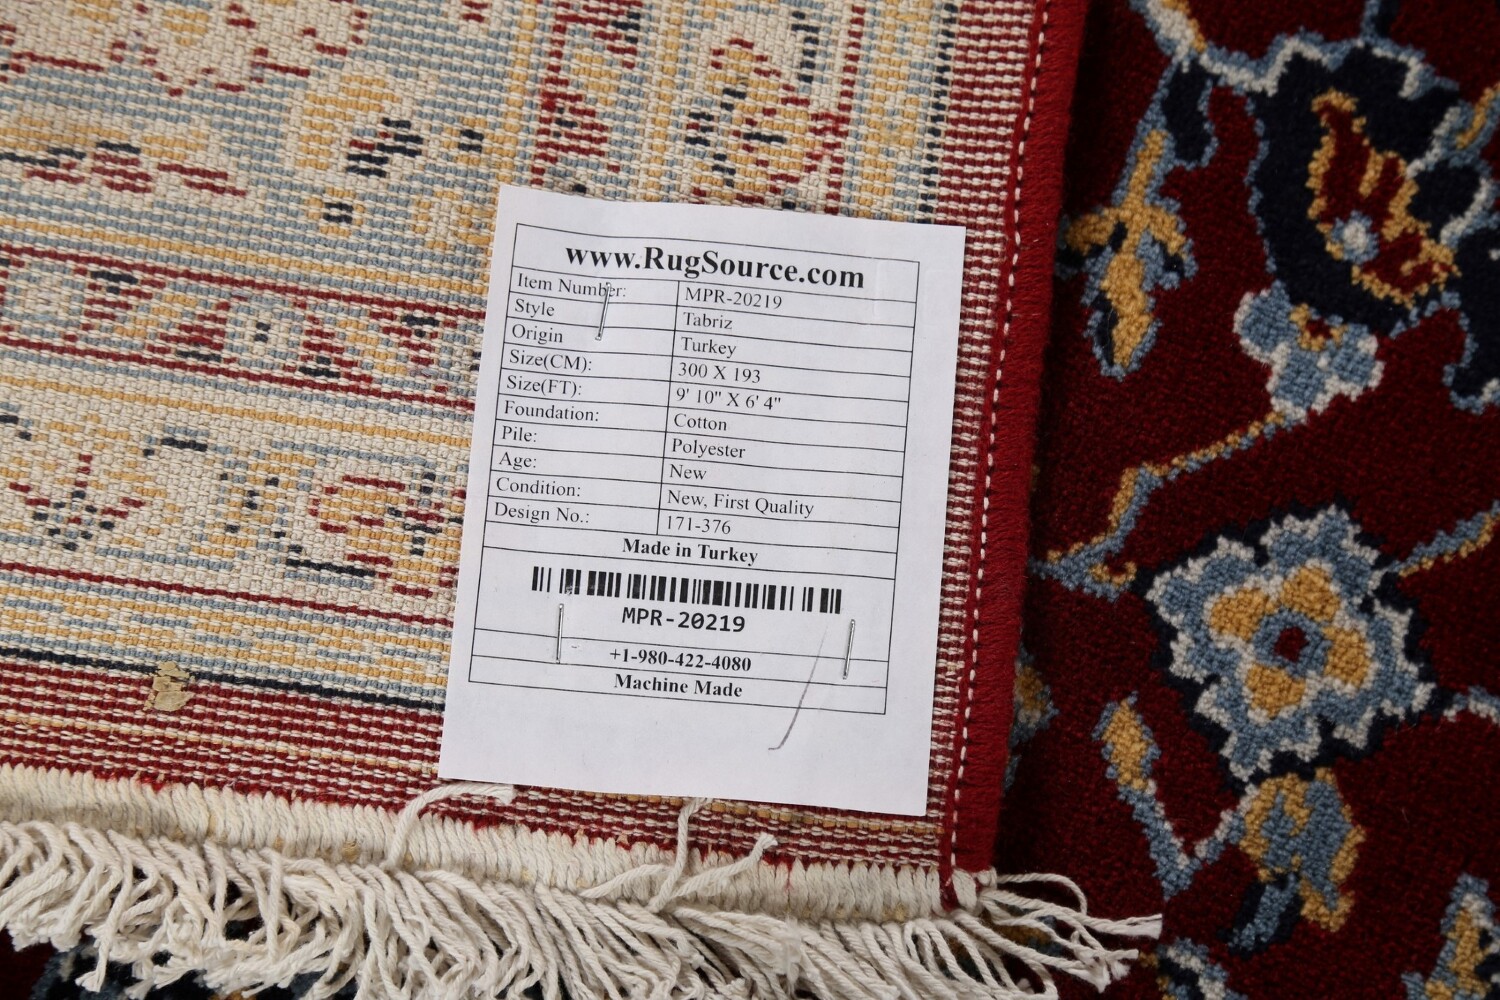 www.RugSource.com
Item Number: MPR-20219
Style Tabriz
Origin Turkey
Size(CM): 300 X 193
Size(FT): 9' 10" X 6' 4"
Foundation: Cotton
Pile: Polyester
Age: New
Condition: New, First Quality
Design No.: 171-376
Made in Turkey
MPR-20219
+1-980-422-4080
Machine Made